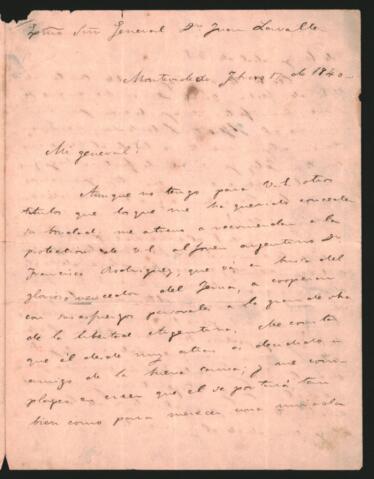 Exmo Sor General Dn Juan Lavalle
Montevideo 17 de 1840
Mi general!
Aunque no tengo para Vd. otros
titulos que los que me ha querido conceder
su bondad, me atrevo a recomendar a la
proteccion de Vd. al joven argentino Dn
Francisco Rodriguez, que vá en busca del
glorioso vencedor del Yeruá, a cooperar
con sus esfuerzos personales a la grande obra
de la libertad Argentina. Me consta
que él desde muy atras es decidido
amigo de la buena causa; y me com-
plazco en creer que el se portará tan
bien como para merecer una mirada